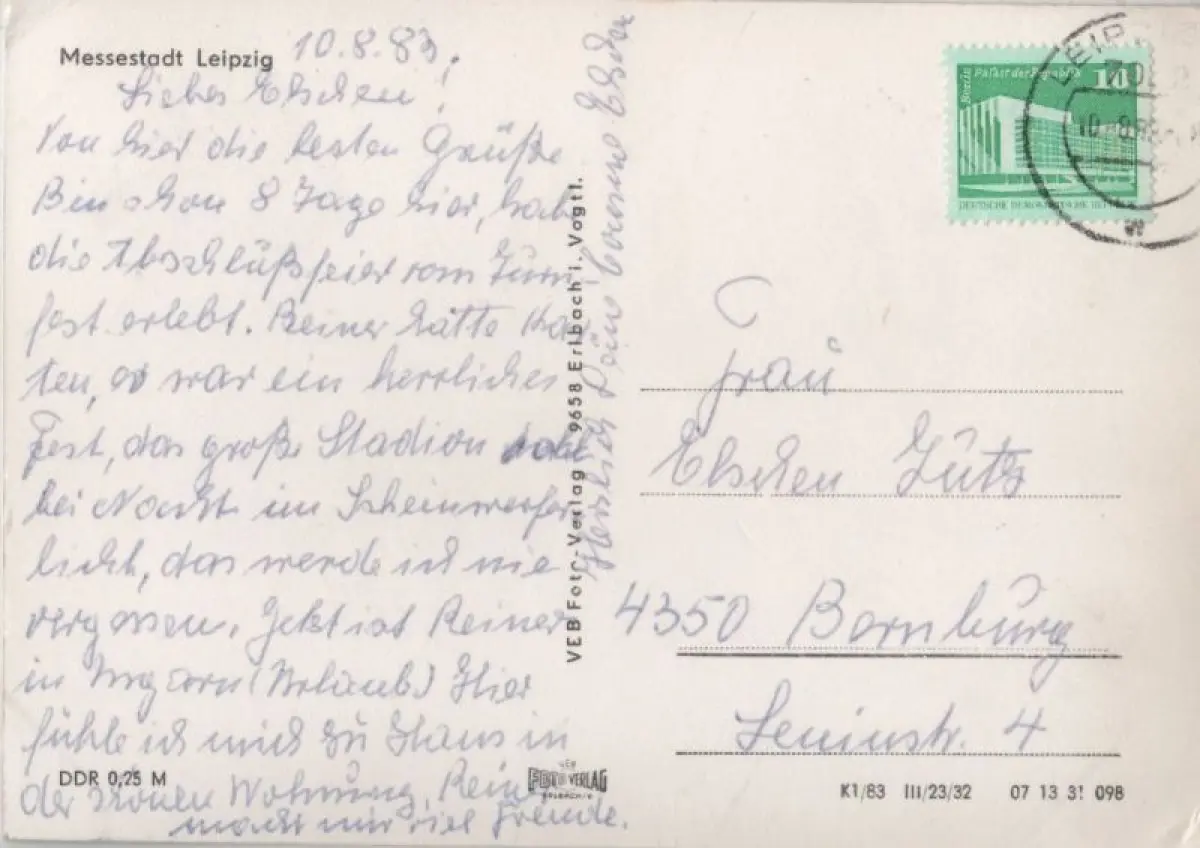 Messestadt Leipzig 10.8.83.
Liebes Elschen!
Von hier die besten Grüße
Bin schon 8 Tage hier, habe
die Abschlüßfeier vom Turn,
fest erlebt. Reiner hatte Kar
ten, es war ein herrliches
Fest, das große Stadion
bei Nacht im Scheinwerfer
licht, das werde ich nie
vergessen. Jetzt ist Reiner
in Ungarn (Urlaub) Hier
fühle ich mich zu Haus in
der schönen Wohnung, Reiner
macht mir viel Freude.
Herzlich
DDR 0,25 M
VEB Foto-Verlag 9658 Erlbach i. Vogtl.
VEB
FOTO VERLAG
ERLBACH/V
Berlin Palast der Republik 10
DEUTSCHE DEMOKRATISCHE REP
LEIP
Frau
Elschen
4350 Bernburg
Leninstr. 4
K1/83 III/23/32 07 13 31 098